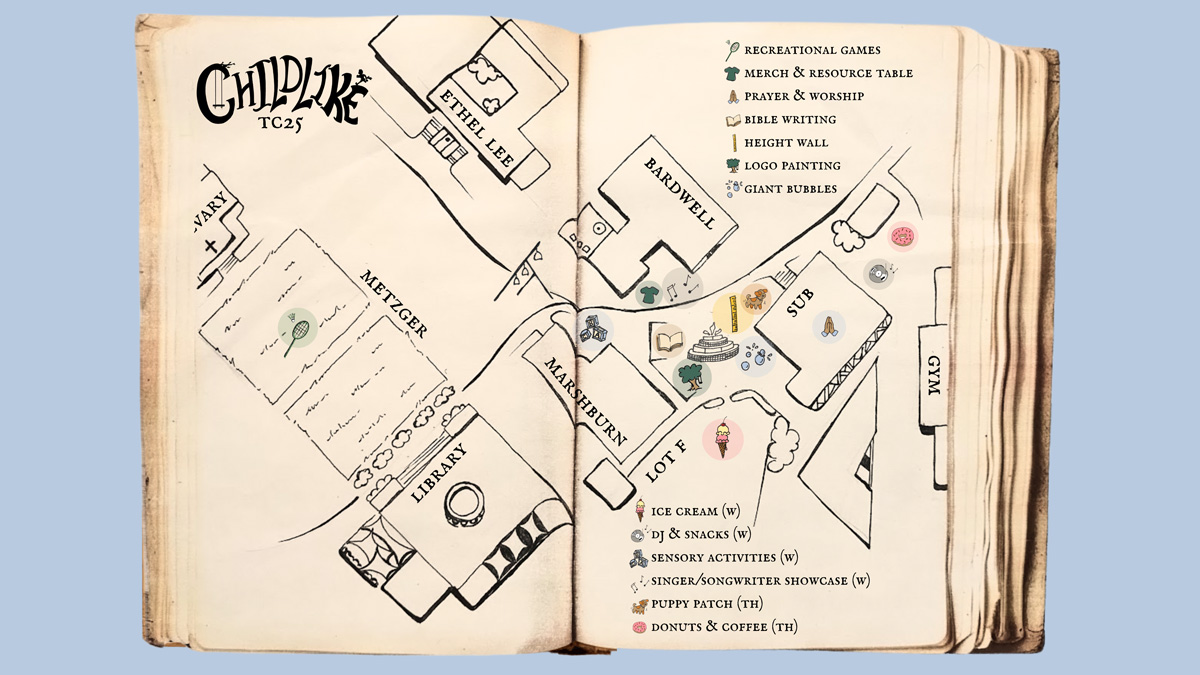 CHILDLIKE
TC25
ETHEL LEE
VARY
METZGER
LIBRARY
MARSHBURN
BARDWELL
SUB
GYM
LOT F
RECREATIONAL GAMES
MERCH & RESOURCE TABLE
PRAYER & WORSHIP
BIBLE WRITING
HEIGHT WALL
LOGO PAINTING
GIANT BUBBLES
ICE CREAM (W)
DJ & SNACKS (W)
SENSORY ACTIVITIES (W)
SINGER/SONGWRITER SHOWCASE (W)
PUPPY PATCH (TH)
DONUTS & COFFEE (TH)